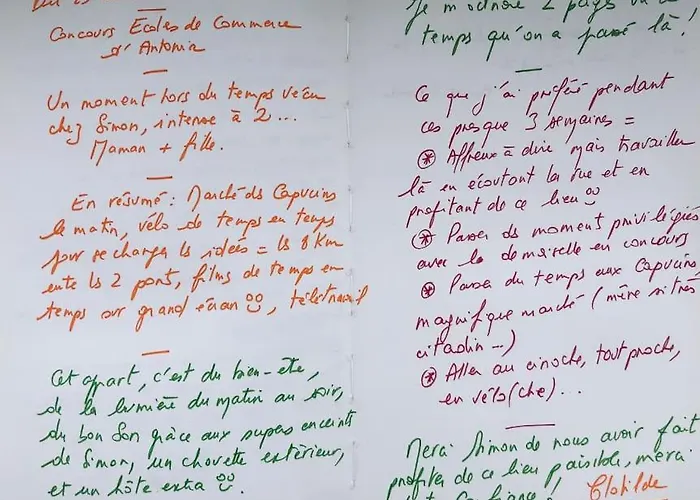 Concours Ecoles de Commerce
d'Antonia
Un moment hors du temps vécu
chez Simon, intense à 2...
Maman + fille.
En résumé : Marché ds Capucins
le matin, vélo de temps en temps
pour se changer ls idées = ls 8 km
ente ls 2 ponts, films de temps en
temps sur grand écran, télétravail
Cet appart, c'est du bien-être,
de la lumière du matin au soir,
du bon son grâce aux supers enceints
de Simon, un chouette extérieur,
et un hôte extra
2 pays
temps qu'on a passé là.
Ce que j'ai préféré pendant
ces presque 3 semaines =
Affreux à dire mais travailler
là en écoutant la rue et en
profitant de ce lieu
Passer ds moment privilégiés
avec la demoiselle en concours
Passer du temps aux Capucins
magnifique marché (mère si très
citadin...)
Aller au cinoche, tout proche,
en vélo(che)...
Merci Simon de nous avoir fait
profiter de ce lieu paisible, merci
Clotilde